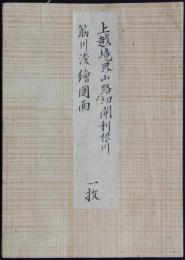 上越境界山路切開利根川
筋川浚繪図面
一枚